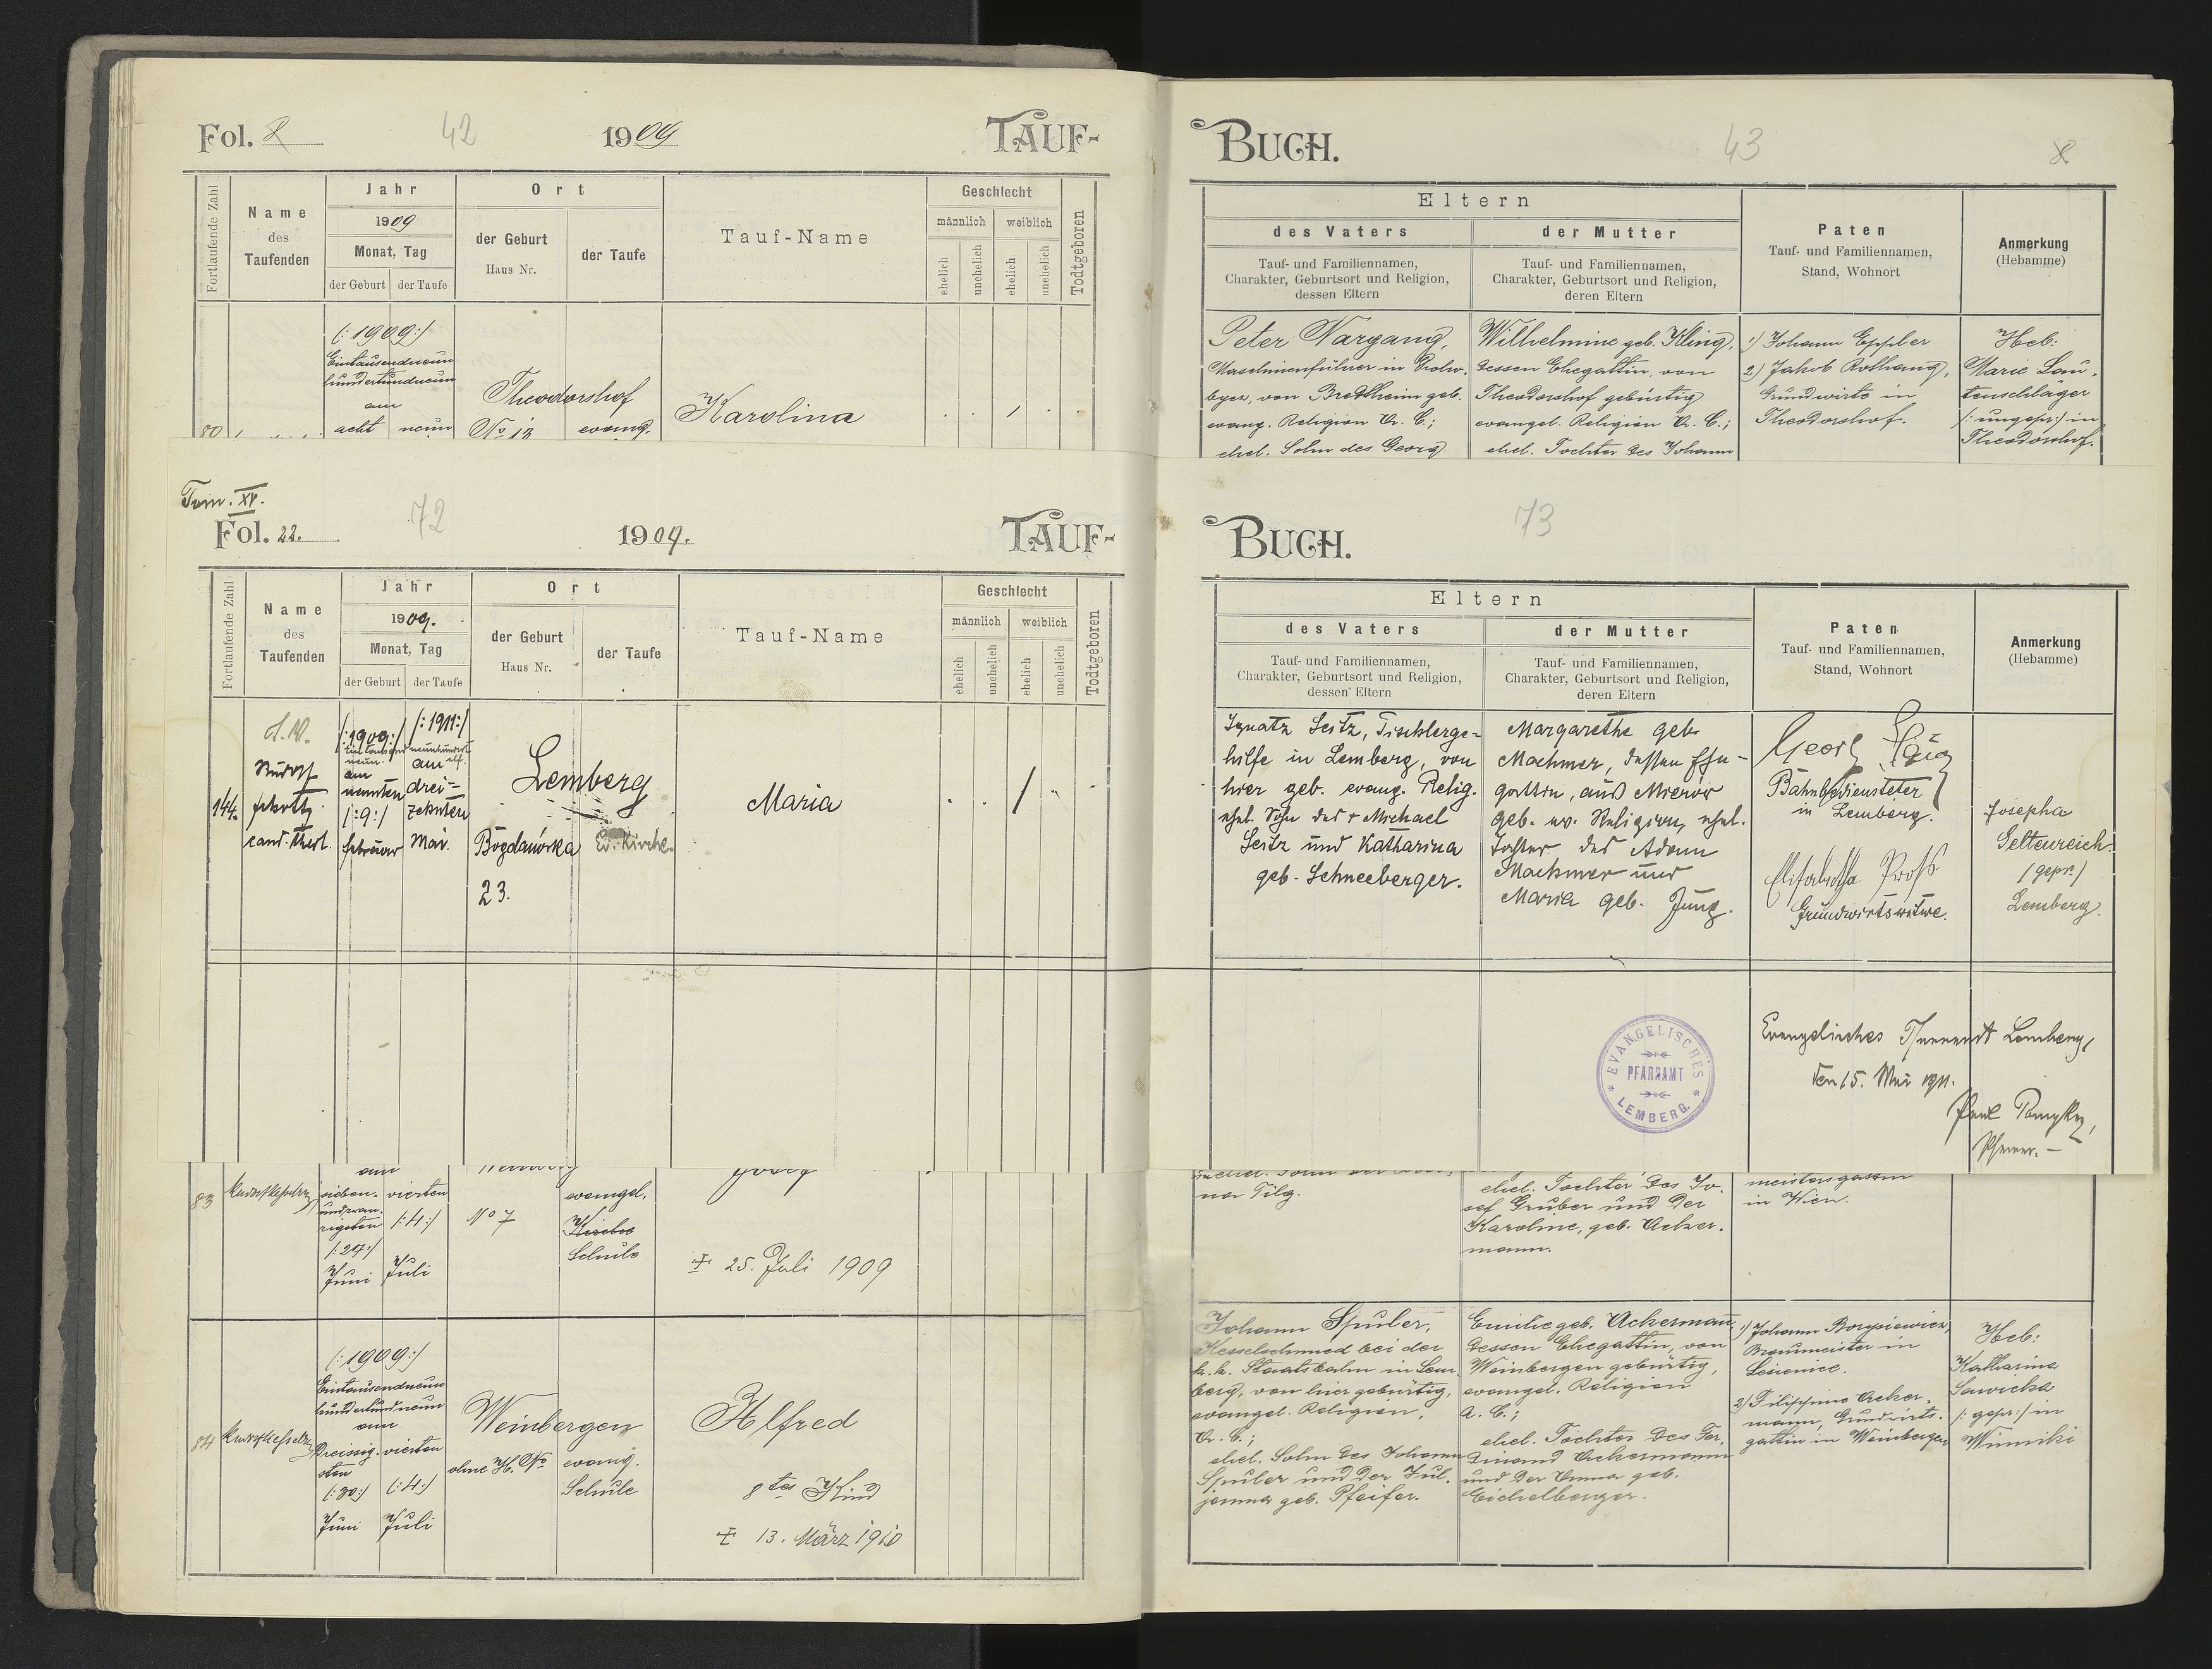 Fol. 8 42 1909 TAUF-
Fortlaufende Zahl
Name
des
Taufenden
Jahr
1909
Monat, Tag
der Geburt der Taufe
Ort
der Geburt
Haus Nr.
der Taufe
Tauf-Name
Geschlecht
männlich weiblich
ehelich unehelich ehelich unehelich
Todtgeboren
80
(: 1909 :)
Eintausendneun
hundertundneun
am
acht neun
Theodorshof
No 13 evang.
Karolina
BUCH. 43 8
Eltern
des Vaters
Tauf- und Familiennamen,
Charakter, Geburtsort und Religion,
dessen Eltern
der Mutter
Tauf- und Familiennamen,
Charakter, Geburtsort und Religion,
deren Eltern
Paten
Tauf- und Familiennamen,
Stand, Wohnort
Anmerkung
(Hebamme)
Peter Wargang,
Maschinenführer in Droho-
bycz, von Bretheim geb.
evang. Religion A. C.;
ehel. Sohn des Georg
Wilhelmine geb. Kling,
dessen Ehegattin, von
Theodorshof gebürtig
evangel. Religion A. C.;
ehel. Tochter des Johann
1) Johann Eppler
2) Jakob Rothaug,
Grundwirte in
Theodorshof.
Heb:
Marie Lau-
tenschläger
(: ungepr :) in
Theodorshof.
Tom. XV.
Fol. 22. 72 1909. TAUF-
Fortlaufende Zahl
Name
des
Taufenden
Jahr
1909.
Monat, Tag
der Geburt der Taufe
Ort
der Geburt
Haus Nr.
der Taufe
Tauf-Name
Geschlecht
männlich weiblich
ehelich unehelich ehelich unehelich
Todtgeboren
144.
Rudolf
cand. theol.
(: 1909 :)
am
neunten
(: 9 :)
Februar
(: 1911 :)
am
drei-
zehnten
Mai.
Lemberg
Bogdanówka Ev. Kirche.
23.
Maria
BUCH. 73
Eltern
des Vaters
Tauf- und Familiennamen,
Charakter, Geburtsort und Religion,
dessen Eltern
der Mutter
Tauf- und Familiennamen,
Charakter, Geburtsort und Religion,
deren Eltern
Paten
Tauf- und Familiennamen,
Stand, Wohnort
Anmerkung
(Hebamme)
Ignatz Seitz, Tischlerge-
hilfe in Lemberg, von
hier geb. evang. Relig.
ehel. Sohn des + Michael
Seitz und Katharina
geb. Schneeberger.
Margarethe geb.
Machmer, dessen Ehe-
gattin, aus Mierów
geb. ev. Religion, ehel.
Tochter des Adam
Machmer und
Maria geb. Jung.
Georg
Bahnbediensteter
in Lemberg.
Elisabetha
Grundwirtswitwe.
Josepha
Geltenreich
(gepr.)
Lemberg.
EVANGELISCHES
PFARRAMT
LEMBERG.
Evangelisches Pfarramt Lemberg,
den 15. Mai 1911.
Pfarrer.
83
am
sieben-
undzwan-
zigsten
(: 27 :)
Juni
vierten
(: 4 :)
Juli
No 7
evangel.
Kirche
Schule
+ 25. Juli 1909
na Tilg.
ehel. Tochter des Jo-
sef Gruber und der
Karoline, geb. Acker-
mann.
meistersgattin
in Wien.
84
(: 1909 :)
Eintausendneun
hundertundneun
am
Dreissig-
sten
(: 30 :)
Juni
vierten
(: 4 :)
Juli
Weinbergen
ohne H. No evang.
Schule
Alfred
8tes Kind
+ 13. März 1910
Johann Spuler,
Kesselschmied bei der
k. k. Staatsbahn in Lem-
berg, von hier gebürtig,
evangel. Religion,
A. C.;
ehel. Sohn des Johann
Spuler und der Jul-
janna geb. Pfeifer.
Emilie geb. Ackermann,
dessen Ehegattin, von
Weinbergen gebürtig,
evangel. Religion
A. C.;
ehel. Tochter des Fer-
dinand Ackermann
und der Emma geb.
Eichelberger.
1) Johann Borysiewicz,
Braumeister in
Lesienice.
2) Filippine Acker-
mann, Grundwirts-
gattin in Weinbergen
Heb:
Katharina
Sawicka
(: gepr :) in
Winniki